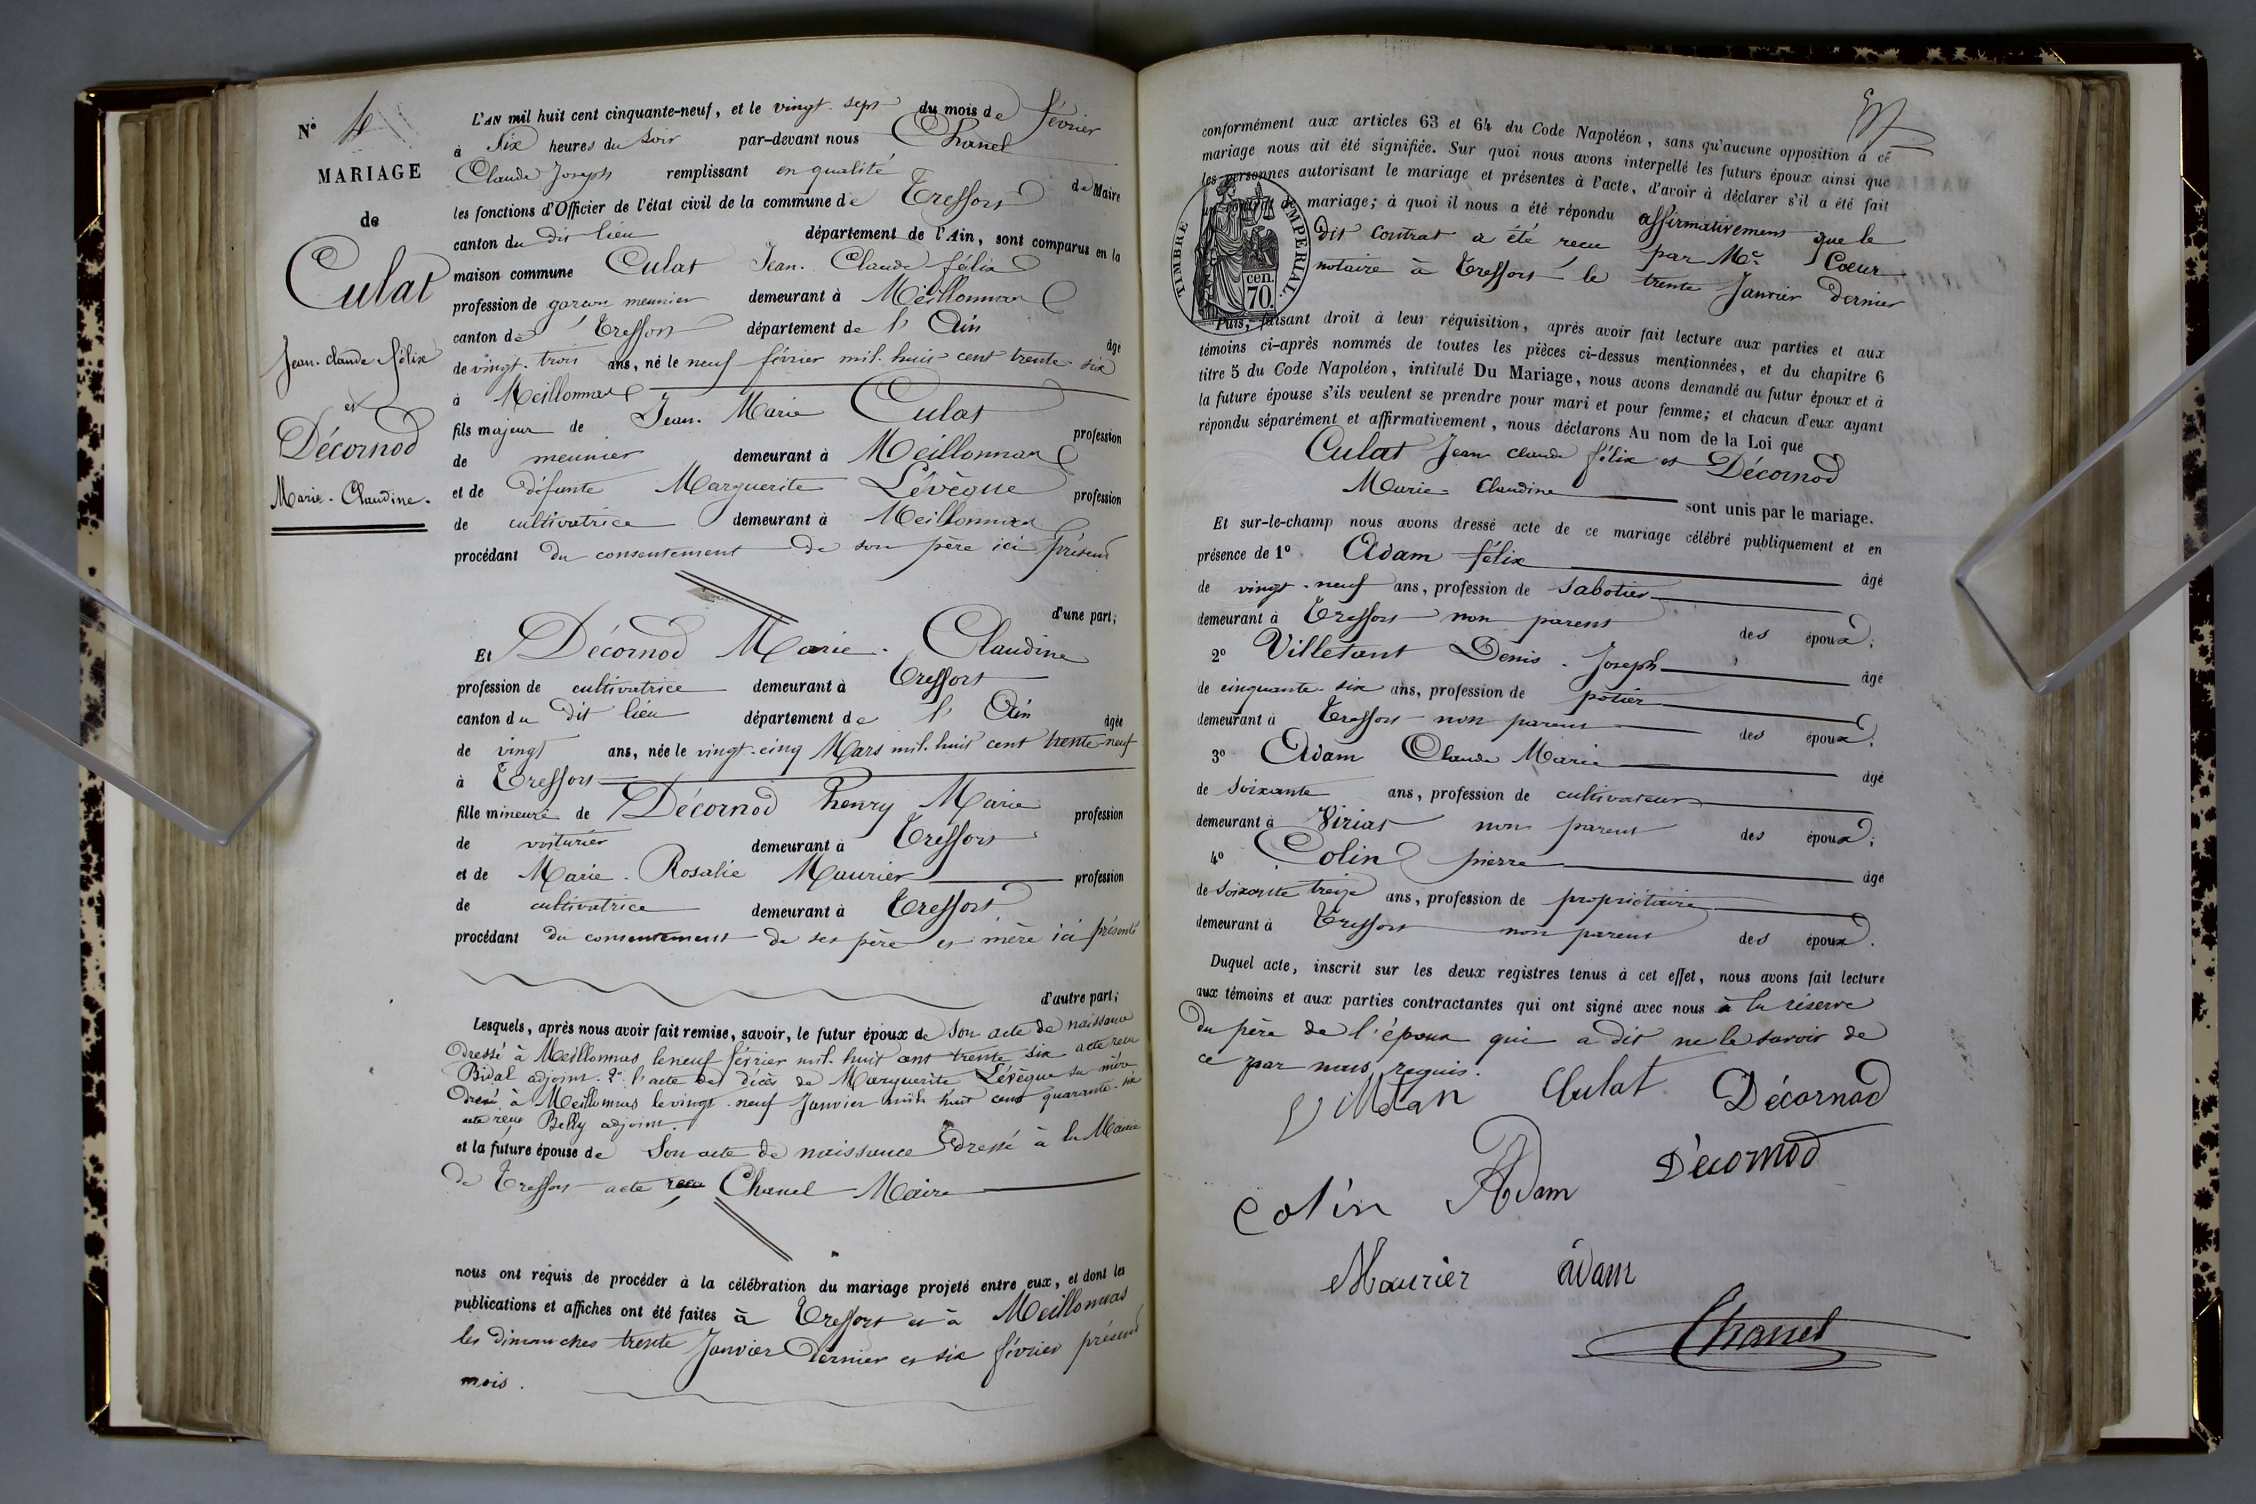 N° 4
MARIAGE
de
Culat
Jean-claude félix
et
Décornod
Marie-Claudine.
L'AN mil huit cent cinquante-neuf, et le vingt-sept du mois de février
à six heures du soir par-devant nous Chanel
Claude Joseph remplissant en qualité de Maire
les fonctions d'Officier de l'état civil de la commune de Treffort
canton du dit lieu département de l'Ain, sont comparus en la
maison commune Culat Jean-Claude félix
profession de garçon meunier demeurant à Meillonnas
canton de Treffort département de l'Ain âgé
de vingt-trois ans, né le neuf février mil-huit-cent trente-six
à Meillonnas
fils majeur de Jean-Marie Culat profession
de meunier demeurant à Meillonnas
et de défunte Marguerite Lévèque profession
de cultivatrice demeurant à Meillonnas
procédant du consentement de son père ici présent
d'une part;
Et Décornod Marie-Claudine
profession de cultivatrice demeurant à Treffort
canton du dit lieu département de l'Ain âgée
de vingt ans, née le vingt-cinq Mars mil-huit cent trente-neuf
à Treffort
fille mineure de Décornod henry Marie profession
de voiturier demeurant à Treffort
et de Marie-Rosalie Maurier profession
de cultivatrice demeurant à Treffort
procédant du consentement de ses père et mère ici présents
d'autre part;
Lesquels, après nous avoir fait remise, savoir, le futur époux de son acte de naissance
dressé à Meillonnas le neuf février mil-huit cent trente six acte reçu
Bidal adjoint. 2° l'acte de décès de Marguerite Lévèque sa mère
dressé à Meillonnas le vingt-neuf Janvier mil huit cent quarante-six
acte reçu Belly adjoint.
et la future épouse de Son acte de naissance dressé à la Mairie
de Treffort acte reçu Chanel Maire
nous ont requis de procéder à la célébration du mariage projeté entre eux, et dont les
publications et affiches ont été faites à Treffort et à Meillonnas
les dimanches trente Janvier dernier et six février présent
mois.
conformément aux articles 63 et 64 du Code Napoléon, sans qu'aucune opposition à ce
mariage nous ait été signifiée. Sur quoi nous avons interpellé les futurs époux ainsi que
les personnes autorisant le mariage et présentes à l'acte, d'avoir à déclarer s'il a été fait
un contrat de mariage; à quoi il nous a été répondu affirmativement que le
dit contrat a été reçu par Me. Coeur
notaire à Treffort le trente Janvier dernier
TIMBRE IMPERIAL.
70 cen.
Puis, faisant droit à leur réquisition, après avoir fait lecture aux parties et aux
témoins ci-après nommés de toutes les pièces ci-dessus mentionnées, et du chapitre 6
titre 5 du Code Napoléon, intitulé Du Mariage, nous avons demandé au futur époux et à
la future épouse s'ils veulent se prendre pour mari et pour femme; et chacun d'eux ayant
répondu séparément et affirmativement, nous déclarons Au nom de la Loi que
Culat Jean claude félix et Décornod
Marie-Claudine sont unis par le mariage.
Et sur-le-champ nous avons dressé acte de ce mariage célébré publiquement et en
présence de 1° Adam félix âgé
de vingt-neuf ans, profession de sabotier
demeurant à Treffort non parent des époux;
2° Villetant Denis-Joseph âgé
de cinquante-six ans, profession de potier
demeurant à Treffort non parent des époux;
3° Adam Claude Marie âgé
de soixante ans, profession de cultivateur
demeurant à Viriat non parent des époux;
4° Colin pierre âgé
de soixante treize ans, profession de propriétaire
demeurant à Treffort non parent des époux.
Duquel acte, inscrit sur les deux registres tenus à cet effet, nous avons fait lecture
aux témoins et aux parties contractantes qui ont signé avec nous à la réserve
du père de l'époux qui a dit ne le savoir de
ce par nous requis.
Culat Décornod
Colin Adam Décornod
Maurier adam
Chanel